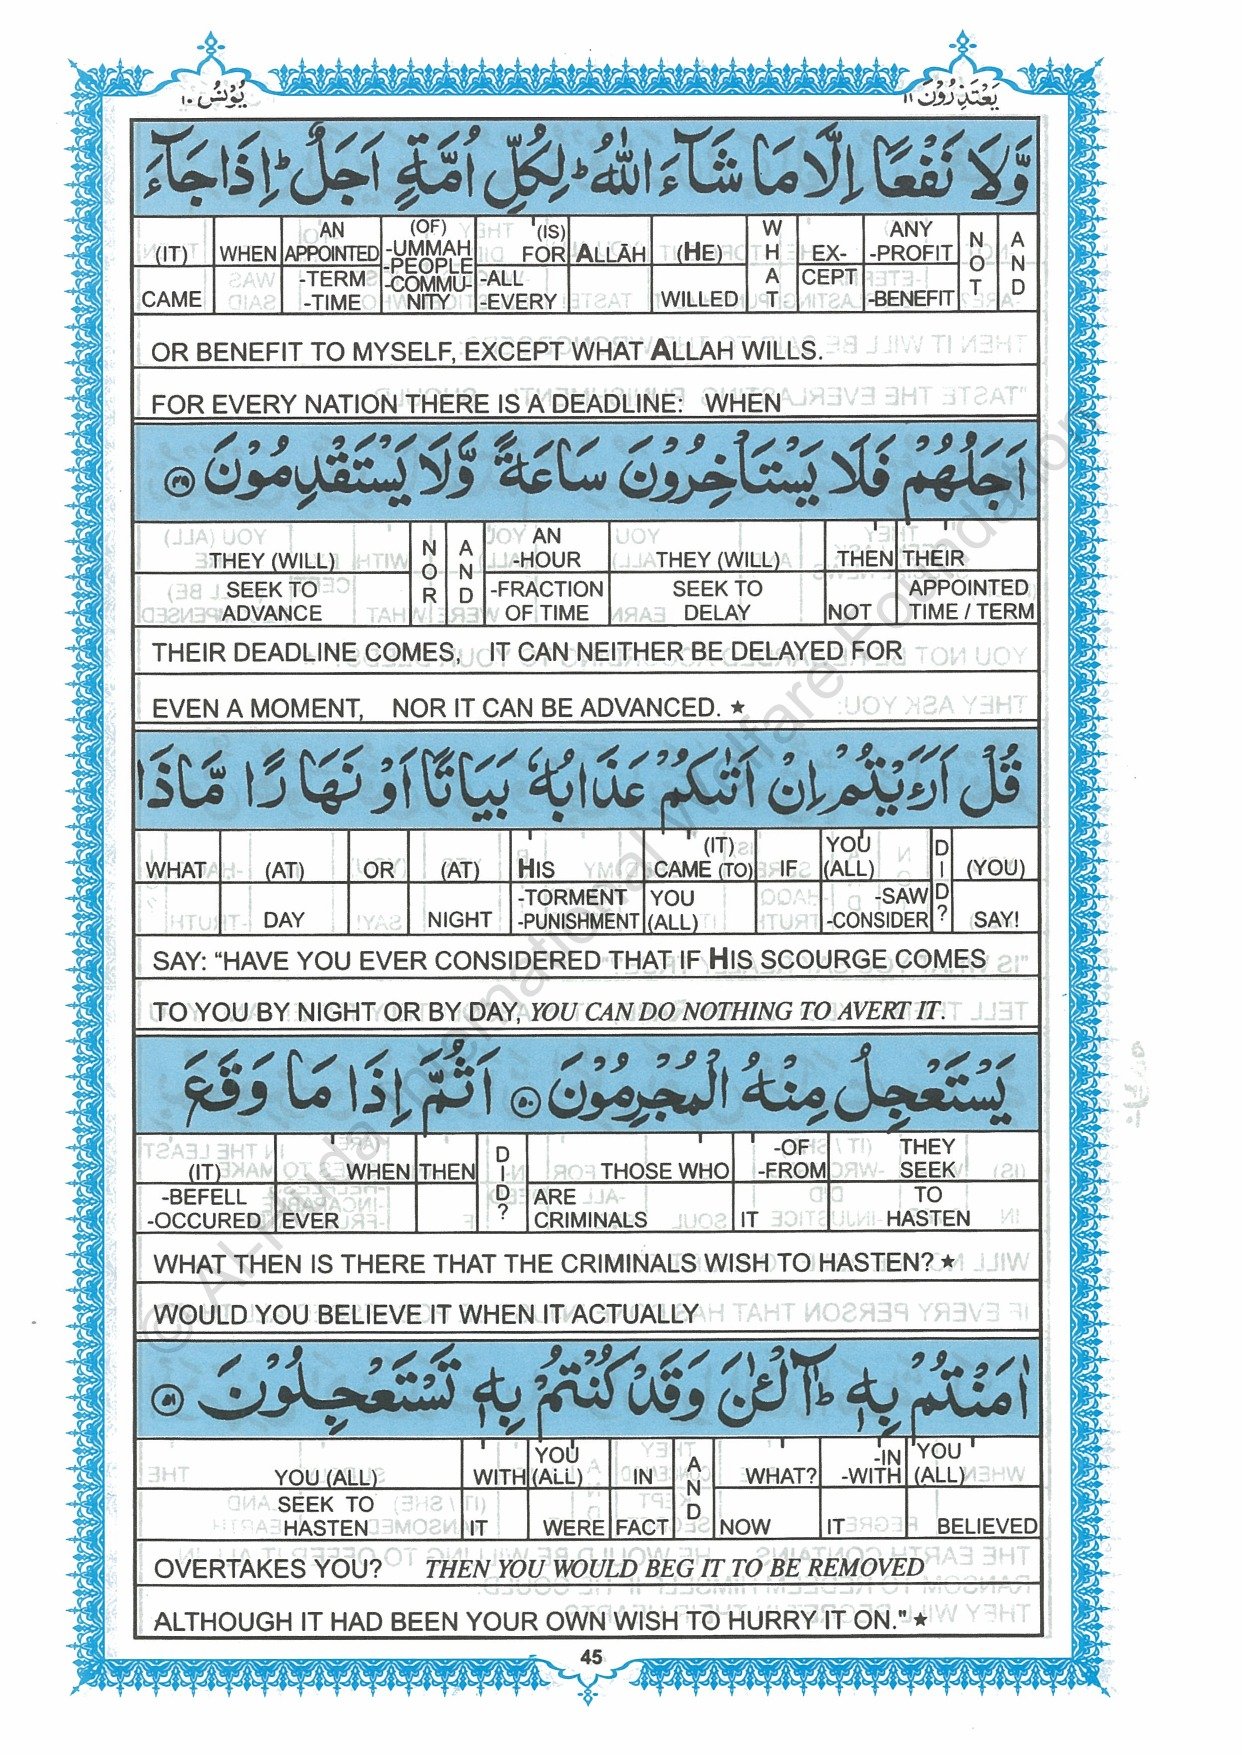 يَعْتَذِرُوْنَ ١١
يُوْنُسُ ١٠
وَّلَا نَفْعًا اِلَّا مَا شَآءَ اللّٰهُ ؕ لِكُلِّ اُمَّةٍ اَجَلٌ ؕ اِذَا جَآءَ
(IT) WHEN AN APPOINTED (OF) -UMMAH -PEOPLE -COMMU- NITY '(IS) FOR ALLĀH (HE) WHAT EX- ANY -PROFIT NOT AND
CAME -TERM -TIME -ALL -EVERY WILLED CEPT -BENEFIT
OR BENEFIT TO MYSELF, EXCEPT WHAT ALLAH WILLS.
FOR EVERY NATION THERE IS A DEADLINE: WHEN
اَجَلُهُمْ فَلَا يَسْتَاْخِرُوْنَ سَاعَةً وَّلَا يَسْتَقْدِمُوْنَ ﴿۴۹﴾
THEY (WILL) NOR AND AN -HOUR THEY (WILL) THEN THEIR
SEEK TO ADVANCE -FRACTION OF TIME SEEK TO DELAY NOT APPOINTED TIME / TERM
THEIR DEADLINE COMES, IT CAN NEITHER BE DELAYED FOR
EVEN A MOMENT, NOR IT CAN BE ADVANCED. ★
قُلْ اَرَءَيْتُمْ اِنْ اَتٰىكُمْ عَذَابُهٗ بَيَاتًا اَوْ نَهَارًا مَّاذَا
WHAT (AT) OR (AT) HIS (IT) CAME (TO) IF YOU (ALL) DID? (YOU)
DAY NIGHT -TORMENT -PUNISHMENT YOU (ALL) -SAW -CONSIDER SAY!
SAY: “HAVE YOU EVER CONSIDERED THAT IF HIS SCOURGE COMES
TO YOU BY NIGHT OR BY DAY, YOU CAN DO NOTHING TO AVERT IT.
يَسْتَعْجِلُ مِنْهُ الْمُجْرِمُوْنَ ﴿۵۰﴾ اَثُمَّ اِذَا مَا وَقَعَ
(IT) WHEN THEN DID? THOSE WHO -OF -FROM THEY SEEK
-BEFELL -OCCURED EVER ARE CRIMINALS IT TO HASTEN
WHAT THEN IS THERE THAT THE CRIMINALS WISH TO HASTEN? ★
WOULD YOU BELIEVE IT WHEN IT ACTUALLY
اٰمَنْتُمْ بِهٖ ؕ آٰلْـٰٔنَ وَقَدْ كُنْتُمْ بِهٖ تَسْتَعْجِلُوْنَ ﴿۵۱﴾
YOU (ALL) WITH YOU (ALL) IN AND WHAT? -IN -WITH YOU (ALL)
SEEK TO HASTEN IT WERE FACT NOW IT BELIEVED
OVERTAKES YOU? THEN YOU WOULD BEG IT TO BE REMOVED
ALTHOUGH IT HAD BEEN YOUR OWN WISH TO HURRY IT ON." ★
45
© Al-Huda International Welfare Foundation